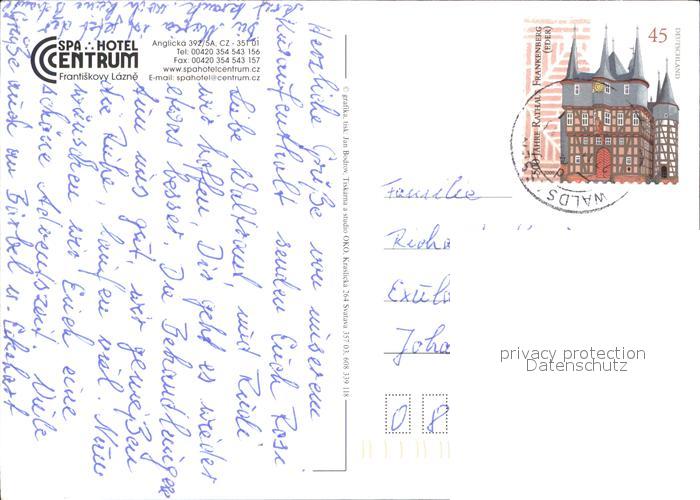 SPA HOTEL
CENTRUM
Františkovy Lázně
Anglická 392/5A, CZ - 351 01
Tel: 00420 354 543 156
Fax: 00420 354 543 157
www.spahotelcentrum.cz
E-mail: spahotel@centrum.cz
Herzliche Grüße von unserem
Kuraufenthalt senden Euch Rosi
und Rudi
Liebe Waltraud,
wir hoffen, Dir geht es wieder
etwas besser. Die Behandlungen
tun uns gut, wir genießen
die Ruhe, laufen viel. Nun
wünschen wir Euch eine
schöne Adventszeit. Viele
Grüße auch an Bärbel u. Ekehart
© grafika, tisk Jan Bodrov, Tiskárna a studio OKO, Kraslická 264 Svatava 357 03, 608 339 118
500 JAHRE RATHAUS FRANKENBERG
(EDER)
45
DEUTSCHLAND
WALDS
Familie
Richa
Exula
Joha
08
privacy protection
Datenschutz